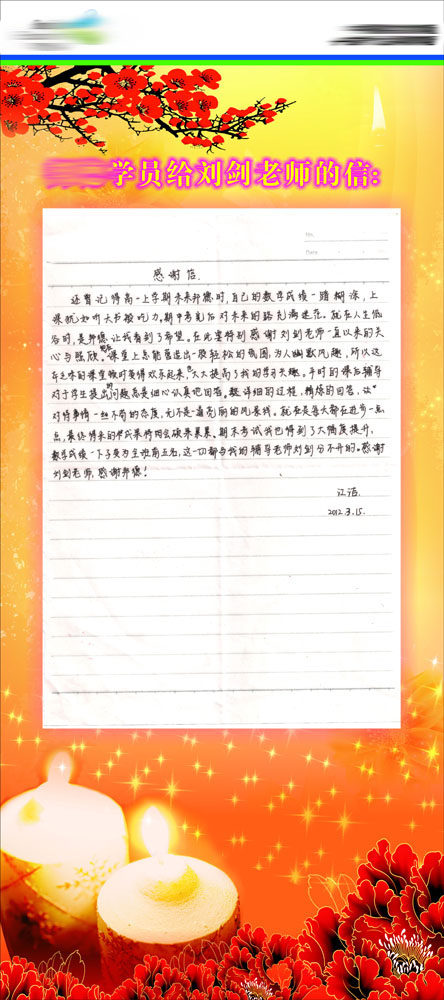 学员给刘剑老师的信:
No.
Date
感谢信
还曾记得高一上学期未来邦德时,自己的数学成绩一踏糊涂,上
课犹如听天书般吃力。期中考完后对未来的路充满迷茫。就在人生低
谷时,是邦德让我看到了希望。在此要特别感谢刘剑老师一直以来的关
心与照顾。课堂上总能营造出一股轻松的氛围,为人幽默风趣,所以这
乏味的课堂顿时变得欢乐起来,大大提高了我的学习兴趣。平时的课后辅导
对于学生提出的问题总是细心认真地回答。超详细的过程,精炼的回答,让
对待事情一丝不苟的态度,无不是道亮丽的风景线。就在是每天都在进步一点
点,最终得来的成果将会硕果累累。期末考试我也得到了大幅度提升,
数学成绩一下子变为全班前五名,这一切都与我的辅导老师刘剑分不开的。感谢
刘剑老师,感谢邦德!
江洁
2012.3.15.